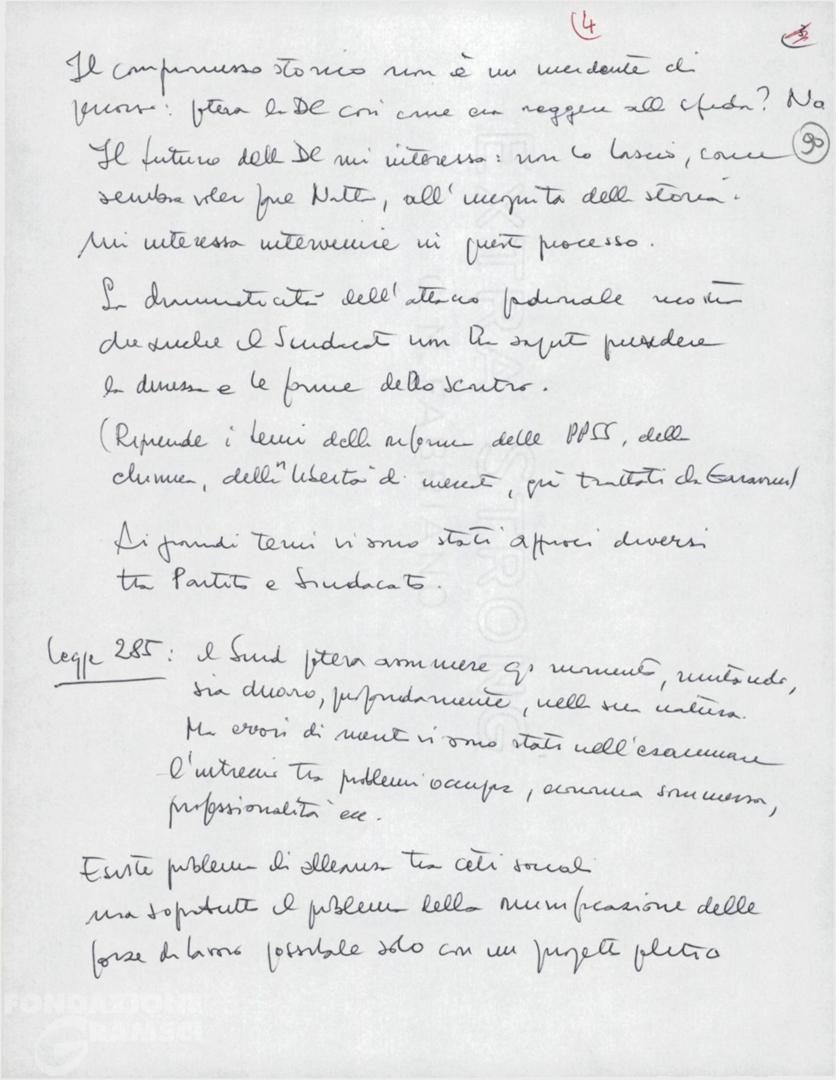 4
3
Il compromesso storico non è un incidente di
percorso: poteva la DC così come era reggere alla sfida? No
90
Il futuro della DC mi interessa: non lo lascio, come
sembra voler fare Natta, all'incognita della storia.
Mi interessa intervenire in questo processo.
La drammaticità dell'attacco padronale mostra
che anche il Sindacato non ha saputo prevedere
la durezza e le forme dello scontro.
(Riprende i temi della riforma delle PPSS, della
chimica, della "libertà" di mercato, già trattati da Garavini)
Ai grandi temi vi sono stati approcci diversi
tra Partito e Sindacato.
Legge 285: il Sind poteva assumere qs momento, mutando,
sia chiaro, profondamente, nella sua natura.
Ma errori di vi sono stati nell'esaminare
l'intreccio tra problemi occupaz, economia sommersa,
professionalità ecc.
Esiste problema di alleanza tra ceti sociali
ma sopratutto il problema della riunificazione delle
forze di lavoro possibile solo con un progetto politico
FONDAZIONE
GRAMSCI
EXTRA STRONG